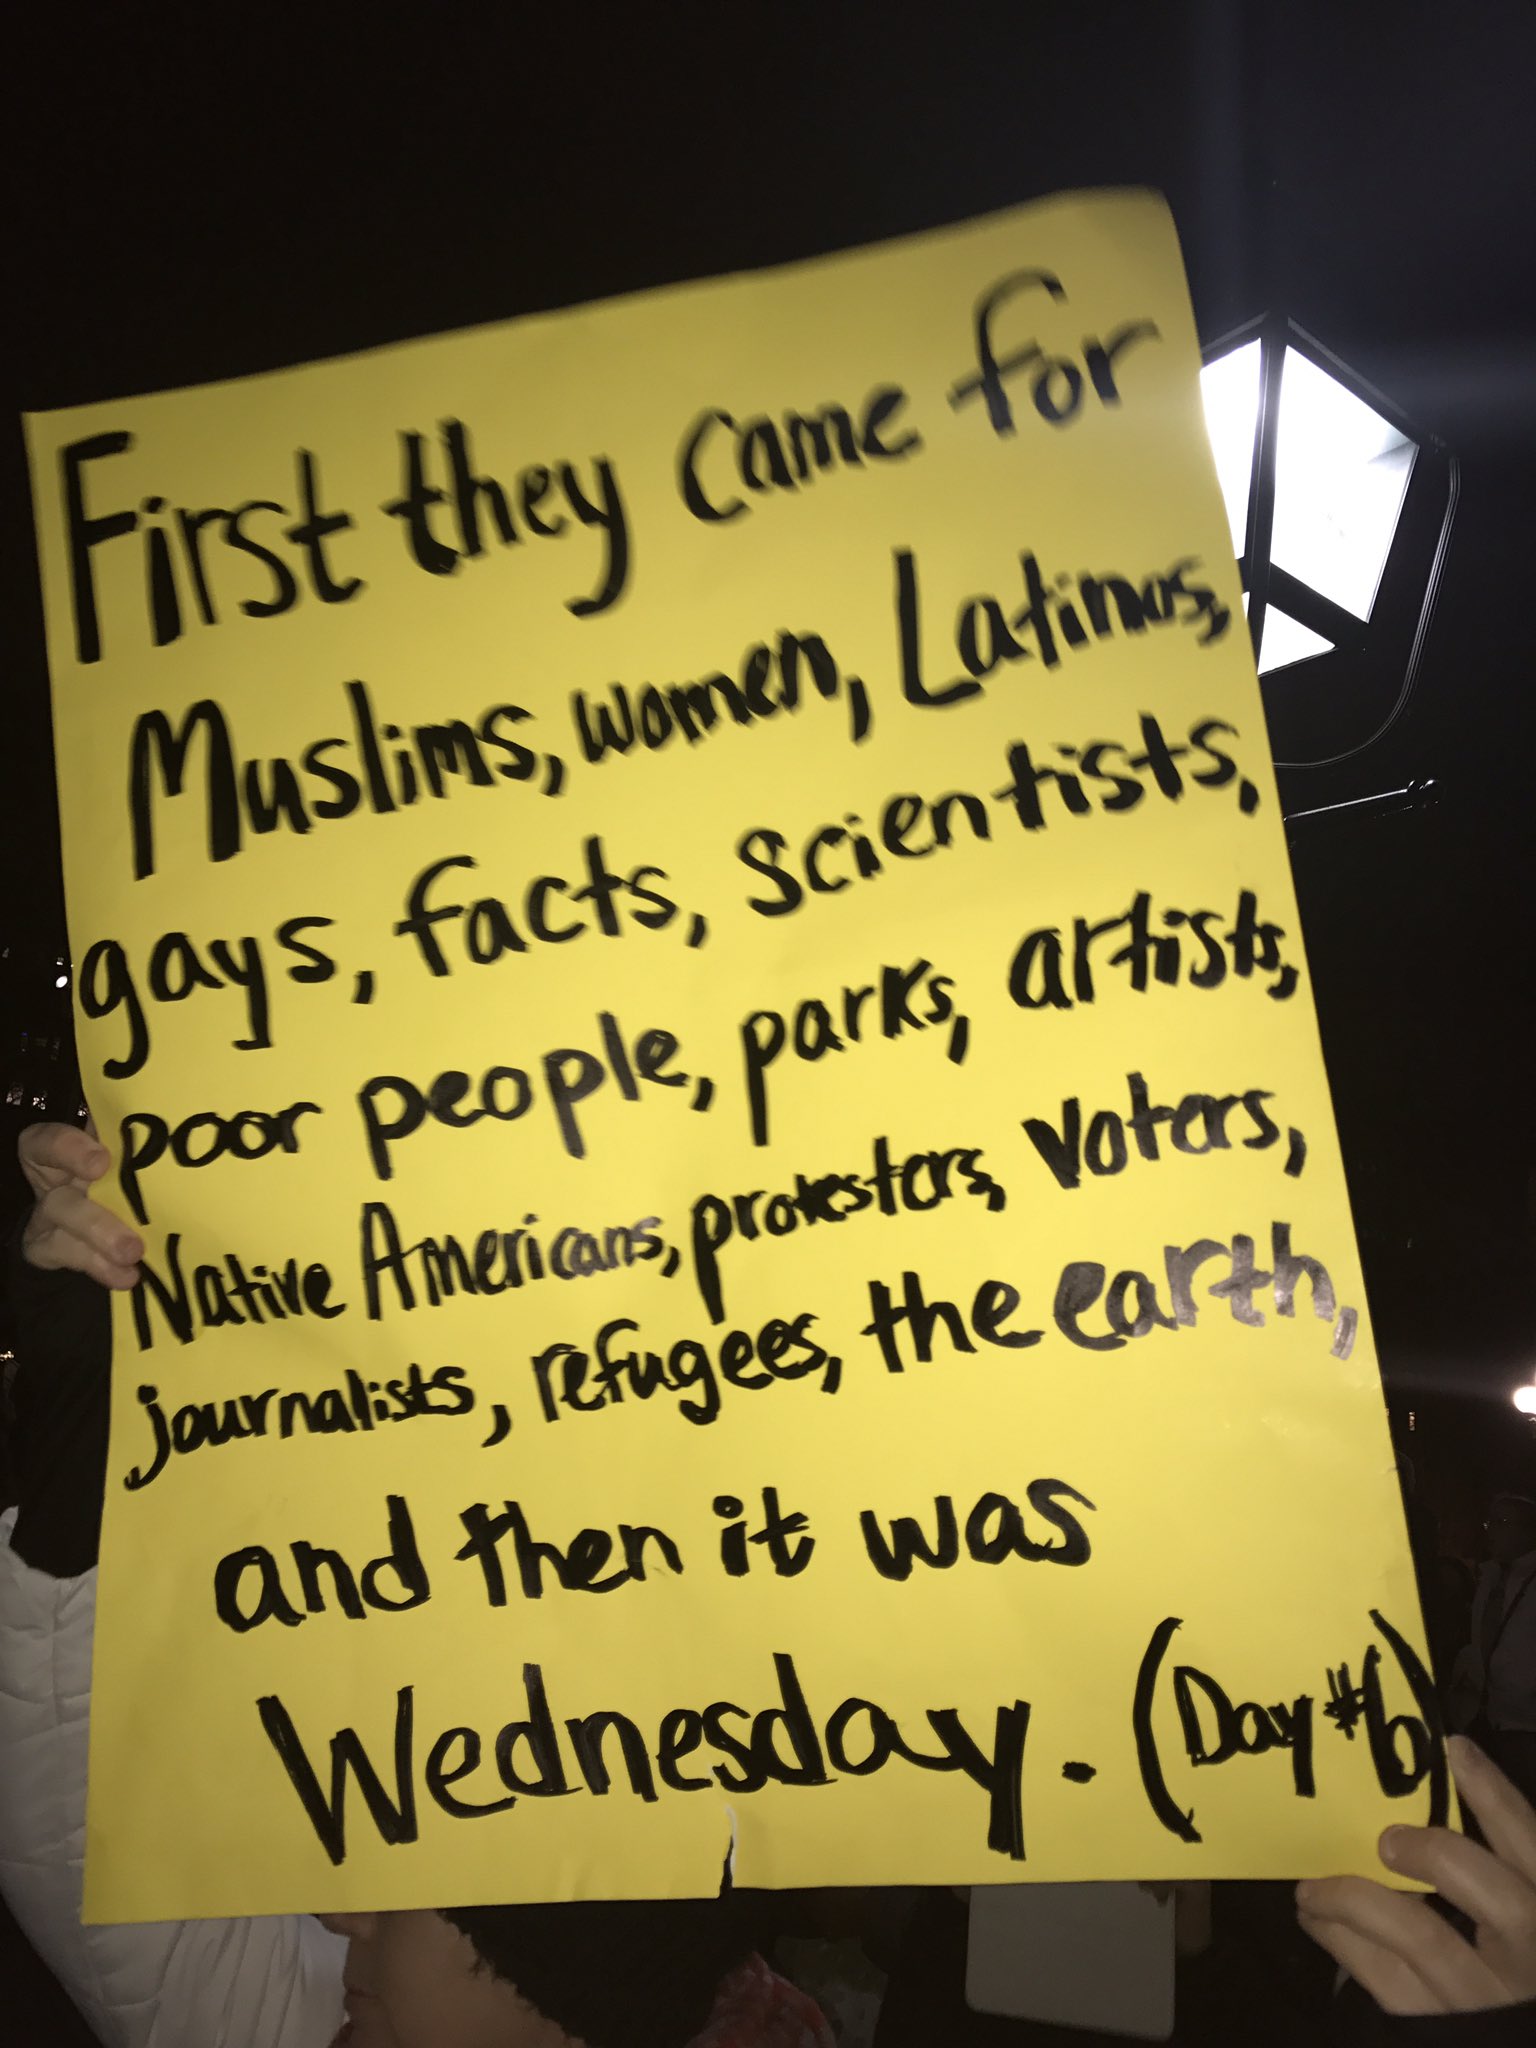 First they came for
Muslims, women, Latinos,
gays, facts, scientists,
poor people, parks, artists,
Native Americans, protesters, voters,
journalists, refugees, the earth,
and then it was
Wednesday. (Day #6)